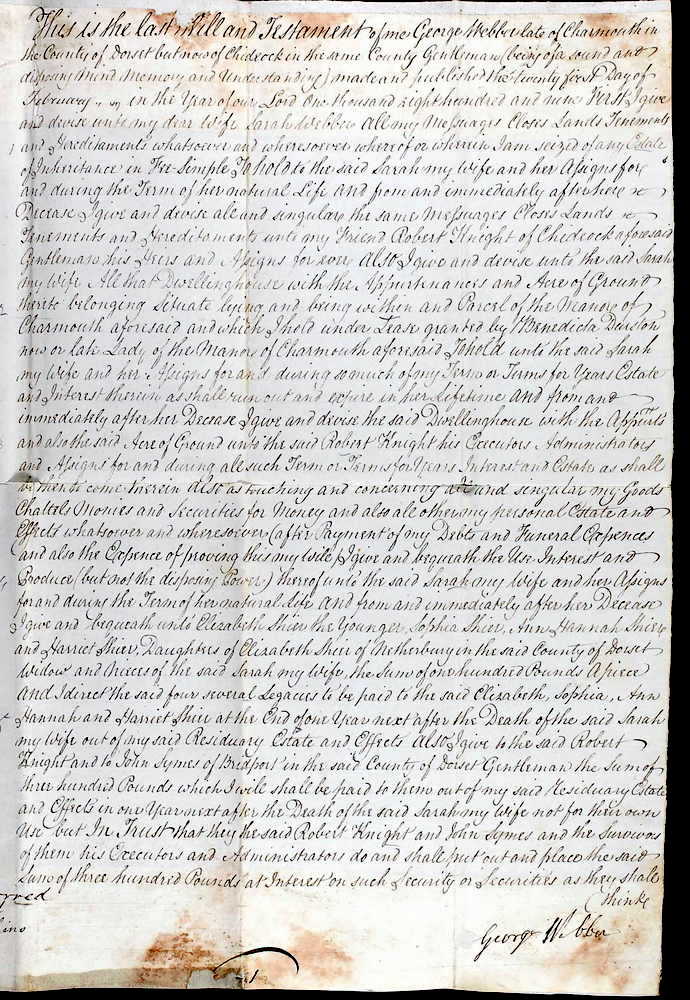 This is the last Will and Testament of me George Webber late of Charmouth in
the County of Dorset but now of Chideock in the same County Gentleman (being of a sound and
disposing Mind Memory and Understanding) made and published the twenty first Day of
February in the Year of our Lord One thousand eight hundred and nine First, I give
and devise unto my dear Wife Sarah Webber All my Messuages Closes Lands Tenements
and Hereditaments whatsoever and wheresoever whereof or wherein I am seized of any Estate
of Inheritance in Fee-Simple To hold to the said Sarah my Wife and her Assigns for
and during the Term of her natural Life And from and immediately after her
Decease I give and devise all and singular the same Messuages Closes Lands
Tenements and Hereditaments unto my Friend Robert Knight of Chideock aforesaid
Gentleman his Heirs and Assigns for ever Also I give and devise unto the said Sarah
my Wife All that Dwellinghouse with the Appurtenances and Acre of Ground
thereto belonging Situate lying and being within and Parcel of the Manor of
Charmouth aforesaid and which I hold under Lease granted by Benedicta Durston
now or late Lady of the Manor of Charmouth aforesaid To hold unto the said Sarah
my Wife and her Assigns for and during so much of my Term or Terms for Years Estate
and Interest therein as shall run out and expire in her Lifetime And from and
immediately after her Decease I give and devise the said Dwellinghouse with the Appurts
and also the said Acre of Ground unto the said Robert Knight his Executors Administrators
and Assigns for and during all such Term or Terms for Years Interest and Estate as shall
be then to come therein Also as touching and concerning all and singular my Goods
Chattels Monies and Securities for Money and also all other my personal Estate and
Effects whatsoever and wheresoever (after Payment of my Debts and Funeral Expences
and also the Expence of proving this my Will) I give and bequeath the Use Interest and
Produce (but not the disposing Power) thereof unto the said Sarah my Wife and her Assigns
for and during the Term of her natural Life And from and immediately after her Decease
I give and bequeath unto Elizabeth Shier the Younger, Sophia Shier, Ann Hannah Shier
and Harriet Shier, Daughters of Elizabeth Shier of Netherbury in the said County of Dorset
Widow and Nieces of the said Sarah my Wife, the Sum of one hundred Pounds Apiece
And I direct the said four several Legacies to be paid to the said Elizabeth, Sophia, Ann
Hannah and Harriet Shier at the End of one Year next after the Death of the said Sarah
my Wife out of my said Residuary Estate and Effects Also I give to the said Robert
Knight and to John Symes of Bridport in the said County of Dorset Gentleman the Sum of
three hundred Pounds which I will shall be paid to them out of my said Residuary Estate
and Effects in one Year next after the Death of the said Sarah my Wife not for their own
Use but In Trust that they the said Robert Knight and John Symes and the Survivor
of them his Executors and Administrators do and shall put out and place the said
Sum of three hundred Pounds at Interest on such Security or Securities as they shall
think
George Webber